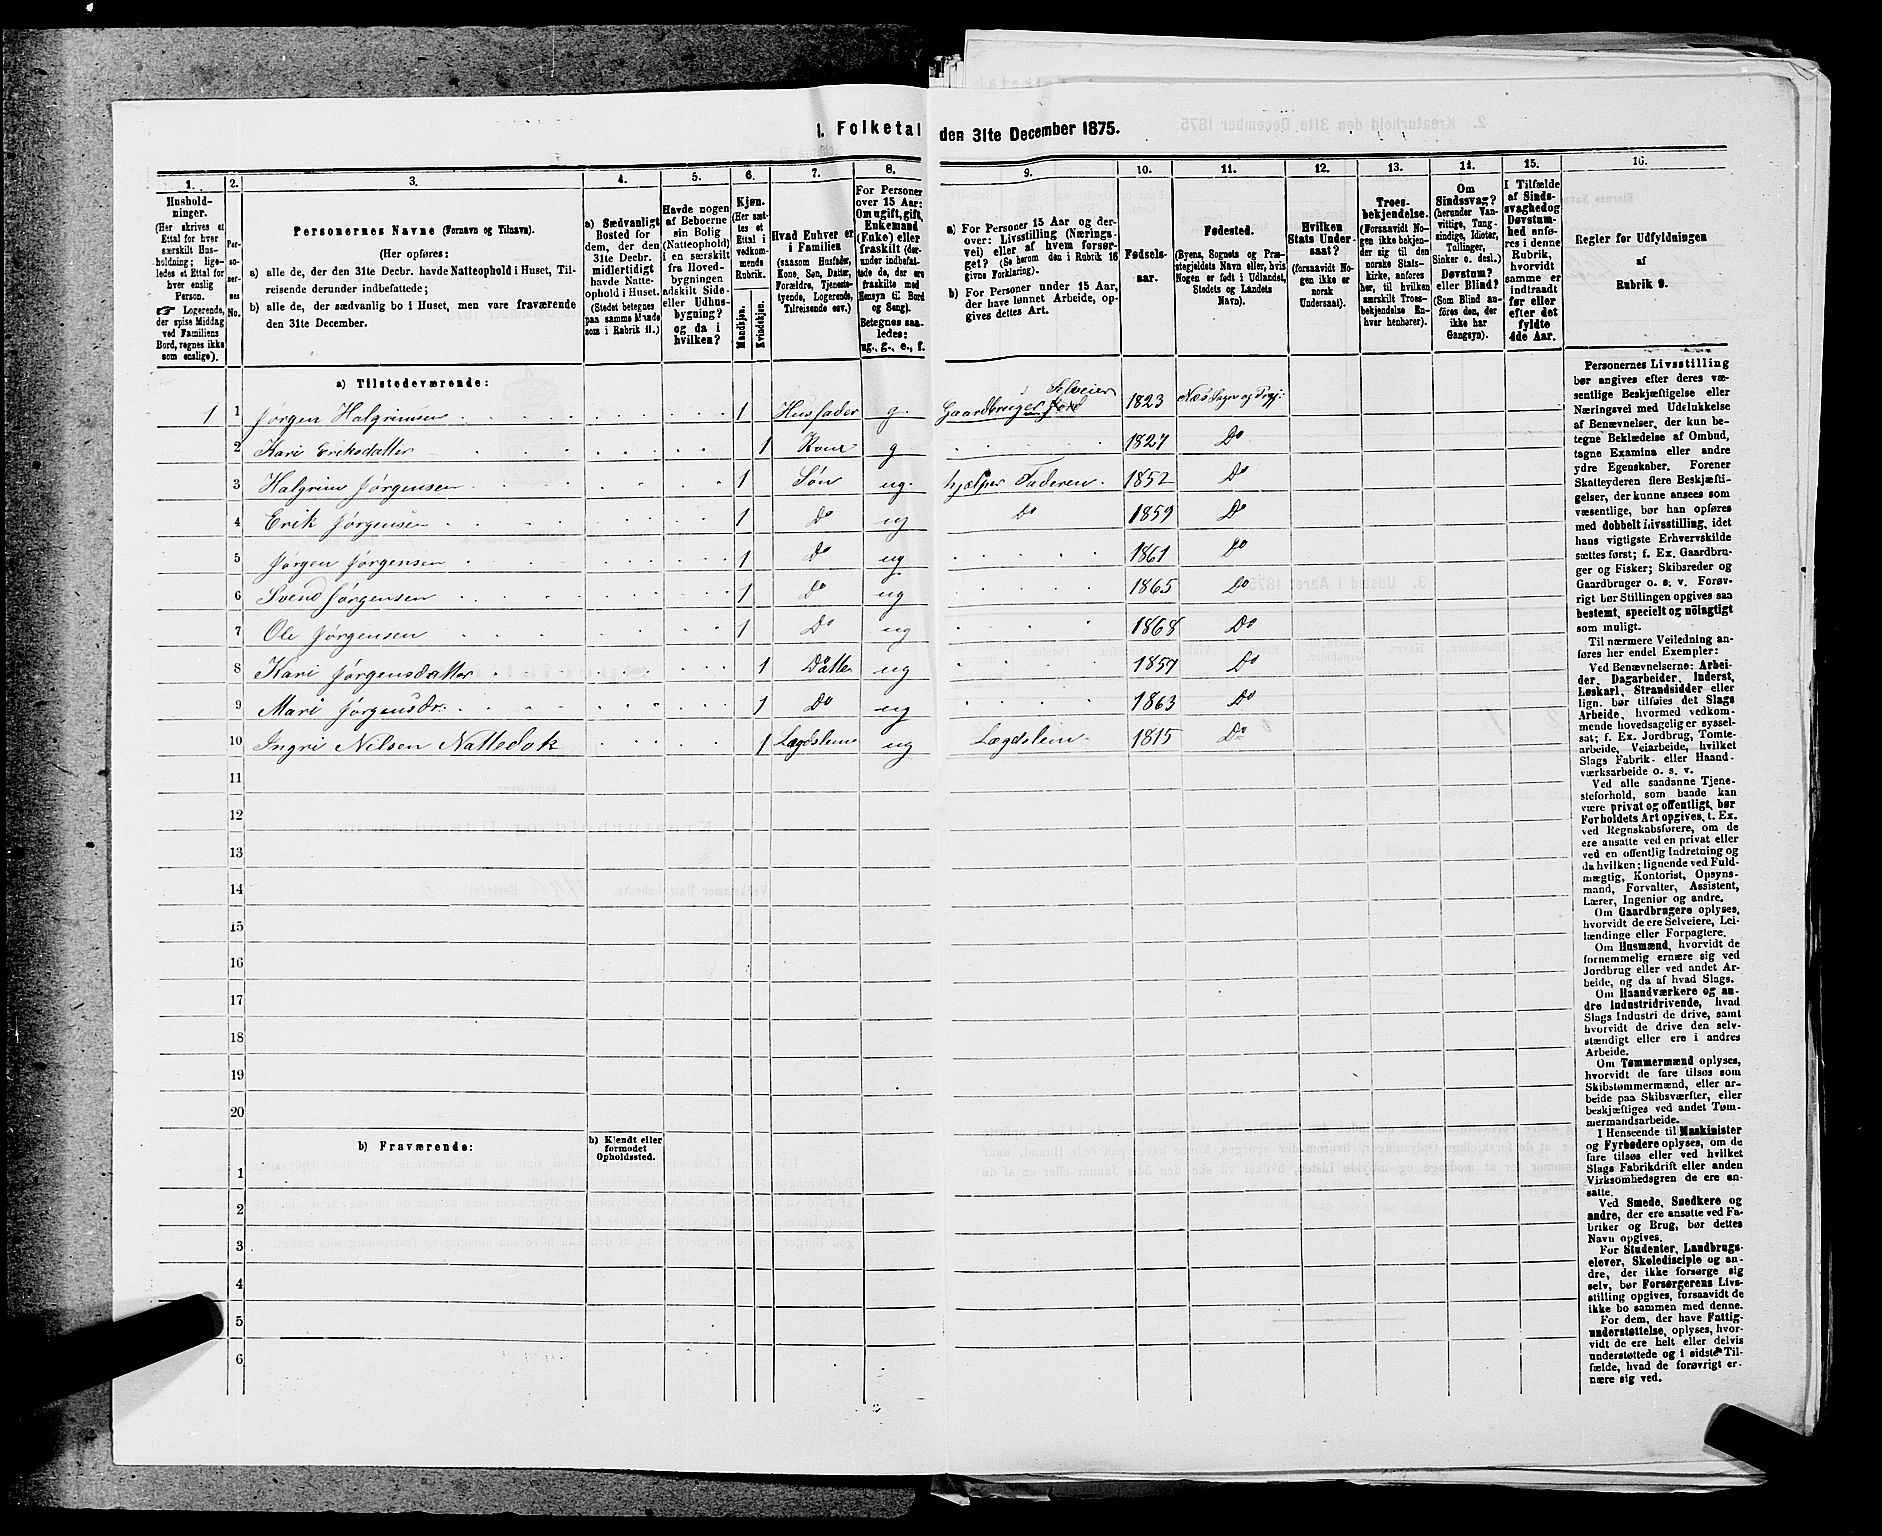 1. Folketal den 31te December 1875.
1. 2. 3. 4. 5. 6. 7. 8. 9. 10. 11. 12. 13. 14. 15. 16.
Hushold-
ninger.
(Her skrives et
Ettal for hver
særskilt Hus-
holdning; lige-
ledes et Ettal for
hver enslig
Person.
☞ Logerende,
der spise Middag
ved Familiens
Bord, regnes ikke
som enslige).
Per-
so-
ner-
nes
No.
Personernes Navne (Fornavn og Tilnavn).
(Her opføres:
a) alle de, der den 31te Decbr. havde Natteophold i Huset, Til-
reisende derunder indbefattede;
b) alle de, der sædvanlig bo i Huset, men vare fraværende
den 31te December.
a) Sædvanligt
Bosted for
dem, der den
31te Decbr.
midlertidigt
havde Natte-
ophold i Huset.
(Stedet betegnes
paa samme Maade
som i Rubrik 11.)
Havde nogen
af Beboerne
sin Bolig
(Natteophold)
i en særskilt
fra Hoved-
bygningen
adskilt Side-
eller Udhus-
bygning?
og da i
hvilken?
Kjøn.
(Her sæt-
tes et
Ettal i
vedkom-
mende
Rubrik.
Mandkjøn.
Kvindekjøn.
Hvad Enhver er
i Familien
(saasom Husfader,
Kone, Søn, Datter,
Forældre, Tjeneste-
tyende, Logerende,
Tilreisende osv.)
For Personer
over 15 Aar:
Om ugift, gift,
Enkemand
(Enke) eller
fraskilt (der-
under indbefat-
tede de, der ere
fraskilte med
Hensyn til Bord
og Seng).
Betegnes saa-
ledes:
ug., g., e., f.
a) For Personer 15 Aar og der-
over: Livsstilling (Nærings-
vei) eller af hvem forsør-
get? (Se herom den i Rubrik 16
givne Forklaring).
b) For Personer under 15 Aar,
der have lønnet Arbeide, op-
gives dettes Art.
Fødsels-
aar.
Fødested.
(Byens, Sognets og Præ-
stegjeldets Navn eller, hvis
Nogen er født i Udlandet,
Stedets og Landets
Navn).
Hvilken
Stats Under-
saat?
(foraavidt No-
gen ikke er
norsk
Undersaat).
Troes-
bekjendelse.
(Forsaavidt No-
gen ikke bekjen-
der sig til den
norske Stats-
kirke, anføres
her, til hvilken
særskilt Troes-
bekjendelse En-
hver henhører).
Om
Sindssvag?
(herunder Van-
vittige, Tung-
sindige, Idioter,
Tullinger,
Sinker o. desl.)
Døvstum?
eller Blind?
(Som Blind an-
føres den, der
ikke har
Gangsyn).
I Tilfælde
af Sinds-
svaghed og
Døvstum-
hed anfø-
res i denne
Rubrik,
hvorvidt
samme er
indtraadt
før eller
efter det
fyldte
4de Aar.
Regler for Udfyldningen
af
Rubrik 9.
a) Tilstedeværende:
1 1 Jørgen Halgrimsen 1 Husfader g. Gaardbruger Selveier 1823 Næs Sogn og Prgj:
2 Kari Eriksdatter 1 Kone g 1827 Do
3 Halgrim Jørgensen 1 Søn ug. hjælper Faderen. 1852 Do
4 Erik Jørgensen 1 Do ug Do 1859 Do
5 Jørgen Jørgensen 1 Do ug 1861 Do
6 Svend Jørgensen 1 Do ug 1865 Do
7 Ole Jørgensen 1 Do ug 1868 Do
8 Kari Jørgensdatter 1 Datter ug 1857 Do
9 Mari Jørgensdr. 1 Do ug 1863 Do
10 Ingri Nilsen Nattedak 1 Lægdslem ug Lægdslem. 1815 Do
11
12
13
14
15
16
17
18
19
20
b) Fraværende:
b) Kjendt eller
formodet
Opholdssted.
1
2
3
4
5
6
Personernes Livsstilling
bør angives efter deres væ-
sentlige Beskjæftigelse eller
Næringsvei med Udelukkelse
af Benævnelser, der kun be-
tegne Beklædelse af Ombud,
tagne Examina eller andre
ydre Egenskaber. Forener
Skatteyderen flere Beskjæfti-
gelser, der kunne ansees som
væsentlige, bør han opføres
med dobbelt Livsstilling, idet
hans vigtigste Erhvervskilde
sættes først; f. Ex. Gaardbru-
ger og Fisker; Skibsreder og
Gaardbruger o. s. v. Forøv-
rigt bør Stillingen opgives saa
bestemt, specielt og nöiagtigt
som muligt.
Til nærmere Veiledning an-
føres her endel Exempler:
Ved Benævnelserne: Arbei-
der, Dagarbeider, Inderst,
Løskarl, Strandsidder eller
lign. bør tilføies det Slags
Arbeide, hvormed vedkom-
mende hovedsagelig er syssel-
sat; f. Ex. Jordbrug, Tomte-
arbeide, Veiarbeide, hvilket
Slags Fabrik- eller Haand-
værksarbeide o. s. v.
Ved alle saadanne Tjene-
steforhold, som baade kan
være privat og offentligt, bør
Forholdets Art opgives, t. Ex.
ved Regnskabsførere, om de
ere ansatte ved en privat eller
ved en offentlig Indretning og
da hvilken; lignende ved Fuld-
mægtig, Kontorist, Opsyns-
mand, Forvalter, Assistent,
Lærer, Ingeniør og andre.
Om Gaardbrugere oplyses,
hvorvidt de ere Selveiere, Lei-
lændinge eller Forpagtere.
Om Husmænd, hvorvidt de
fornemmelig ernære sig ved
Jordbrug eller ved andet Ar-
beide, og da af hvad Slags.
Om Haandværkere og an-
dre Industridrivende, hvad
Slags Industri de drive, samt
hvorvidt de drive den selv-
stændigt eller ere i andres
Arbeide.
Om Tømmermænd oplyses,
hvorvidt de fare tilsøs som
Skibstømmermænd, eller ar-
beide paa Skibsværfter, eller
beskjæftiges ved andet Tøm-
mermandsarbeide.
I Henseende til Maskinister
og Fyrbødere oplyses, om de
fare tilsøs eller ved hvilket
Slags Fabrikdrift eller anden
Virksomhedsgren de ere an-
satte.
Ved Smede, Snedkere og
andre, der ere ansatte ved Fa-
briker og Brug, bør dettes
Navn opgives.
For Studenter, Landbrugs-
elever, Skoledisciple og an-
dre, der ikke forsørge sig
selv, bør Forsørgerens Livs-
stilling opgives, forsaavidt de
ikke bo sammen med denne.
For dem, der have Fattig-
understøttelse, oplyses, hvor-
vidt de ere helt eller delvis
understøttede og i sidste Til-
fælde, hvad de forøvrigt er-
nære sig ved.